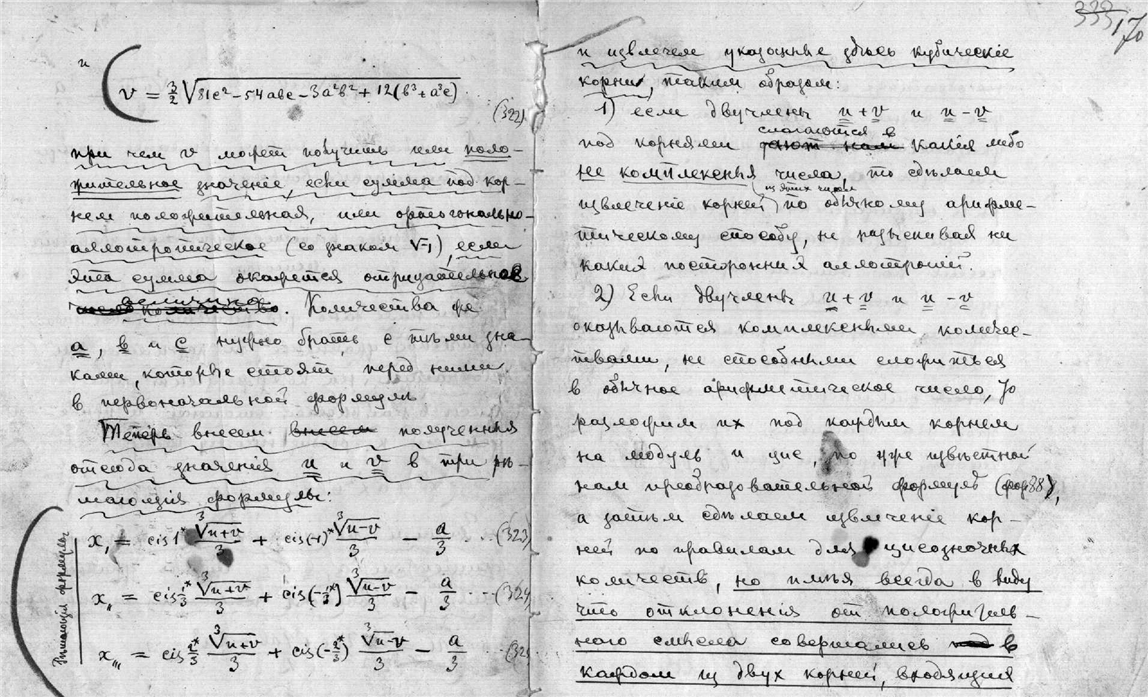 и
v = 3/2 √81c² − 54abc − 3a²b² + 12(b³ + a³c)
(322)
при чем v может получить или поло-
жительное значение, если сумма под кор-
нем положительная, или ортогонально-
аллотропическое (со знаком √-1), если
эта сумма окажется отрицательной
величиной. Количества же
a, b и c нужно брать с тѣми зна-
ками, которые стоят перед ними
в первоначальной формулѣ
Теперь внесем внесем полученныя
отсюда значения u и v в три рѣ-
шающія формулы:
Рѣшающія формулы
x, = cis 1* ³√u+v / 3 + cis(-1)* ³√u-v / 3 − a/3 (323)
x,, = cis 1*/3 ³√u+v / 3 + cis(-1*/3) ³√u-v / 3 − a/3 (324)
x,,, = cis 2*/3 ³√u+v / 3 + cis(-2*/3) ³√u-v / 3 − a/3 (325
333
170
и извлечем указанные здѣсь кубическіе
корни, таким образом:
1) если двучлены u + v и u - v
слагаются в
под корнями какія либо
не комплексныя числа, то сдѣлаем
из этих чисел
извлеченіе корней по обычному арифме-
тическому способу, не разыскивая ни
каких посторонних аллотропій.
2) Если двучлены u + v и u - v
оказываются комплексными, количе-
твами, не способными сложиться
в обычное арифметическое число, то
разложим их под каждым корнем
на модуль и цис, по уже извѣстной
нам преобразовательной формулѣ (фор88),
а затѣм сдѣлаем извлеченіе кор-
ней по правилам для цисозначных
количеств, но имѣя всегда в виду
что отклоненія от положитель-
ного смысла совершались в
каждом из двух корней, входящих